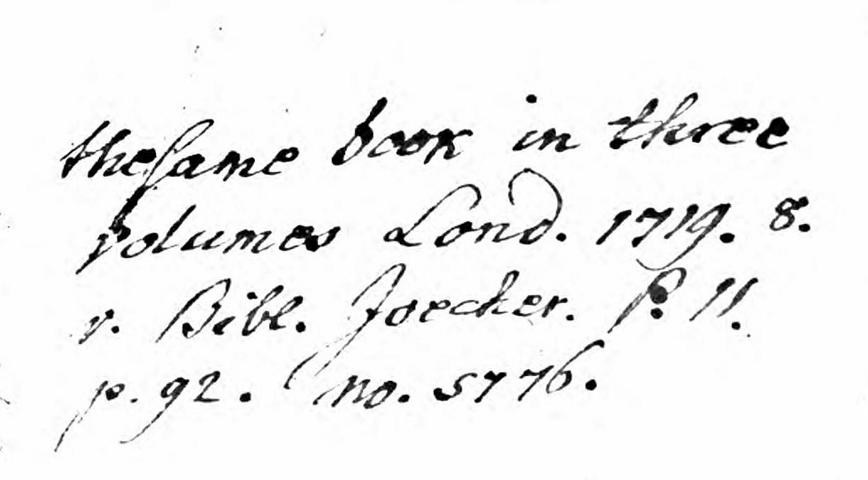 the same book in three
volumes Lond. 1719. 8.
v. Bibl. Joecker. P. 11.
p. 92. no. 5776.